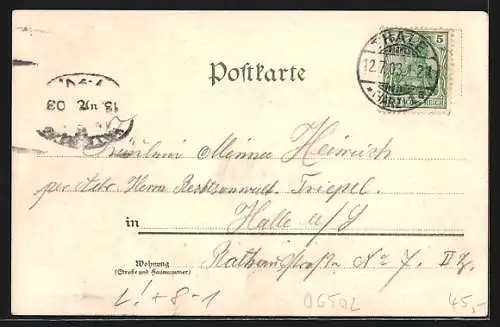 THALE
5
12.7.03.
(HARZ)
Postkarte
03
Fräulein Minna Heinrich
per Adr. Herrn Rechtsanwalt Triepel.
in Halle a/S
Wohnung
(Straße und Hausnummer)
Rathausstraße No 7. II Tr.
L! + 8 - 1
06502
45,-